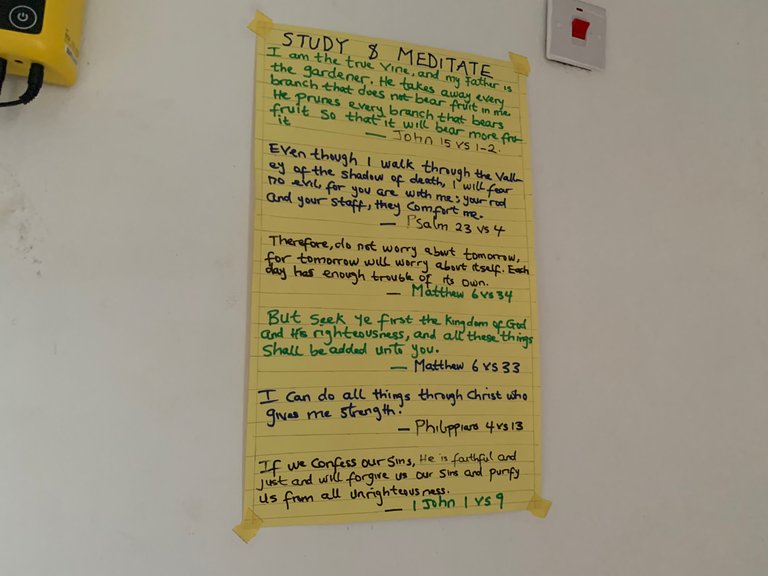 STUDY & MEDITATE
I am the true vine, and my Father is
the gardener. He takes away every
branch that does not bear fruit in me
He prunes every branch that bears
fruit so that it will bear more fru
it
— John 15 vs 1-2.
Even though I walk through the Vall-
ey of the shadow of death, I will fear
no evil, for you are with me; your rod
and your staff, they comfort me.
— Psalm 23 vs 4
Therefore, do not worry about tomorrow,
for tomorrow will worry about itself. Each
day has enough trouble of its own.
— Matthew 6 vs 34
But seek ye first the kingdom of God
and His righteousness, and all these things
Shall be added unto you.
— Matthew 6 vs 33
I Can do all things through Christ who
gives me strength.
— Philippians 4 vs 13
If we Confess our Sins, He is faithful and
just and will forgive us our Sins and purify
us from all unrighteousness.
— 1 John 1 vs 9